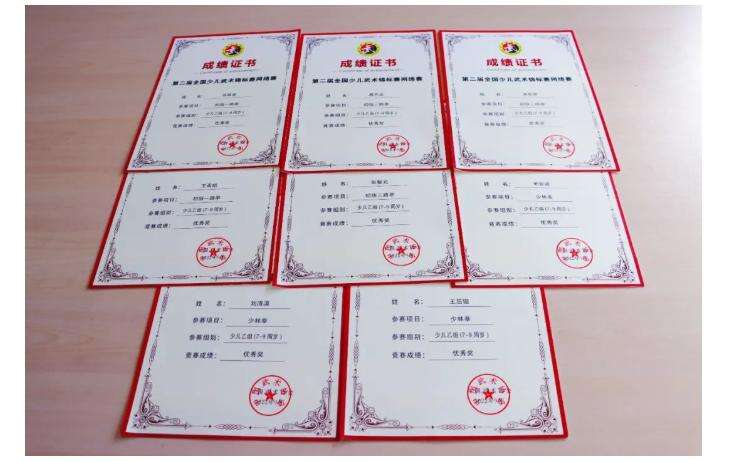 成绩证书
第二届全国少儿武术锦标赛网络赛
姓 名：
参赛项目：初级一路拳
参赛组别：少儿乙组(7-9周岁)
竞赛成绩：优秀奖
成绩证书
第二届全国少儿武术锦标赛网络赛
姓 名：
参赛项目：初级一路拳
参赛组别：少儿乙组(7-9周岁)
竞赛成绩：优秀奖
成绩证书
第二届全国少儿武术锦标赛网络赛
姓 名：
参赛项目：初级一路拳
参赛组别：少儿乙组(7-9周岁)
竞赛成绩：优秀奖
姓 名：
参赛项目：初级一路拳
参赛组别：少儿乙组(7-9周岁)
竞赛成绩：优秀奖
姓 名：
参赛项目：初级二路拳
参赛组别：少儿乙组(7-9周岁)
竞赛成绩：优秀奖
姓 名：
参赛项目：少林拳
参赛组别：少儿乙组(7-9周岁)
竞赛成绩：优秀奖
姓 名：刘浩漫
参赛项目：少林拳
参赛组别：少儿乙组(7-9周岁)
竞赛成绩：优秀奖
姓 名：
参赛项目：少林拳
参赛组别：少儿乙组(7-9周岁)
竞赛成绩：优秀奖